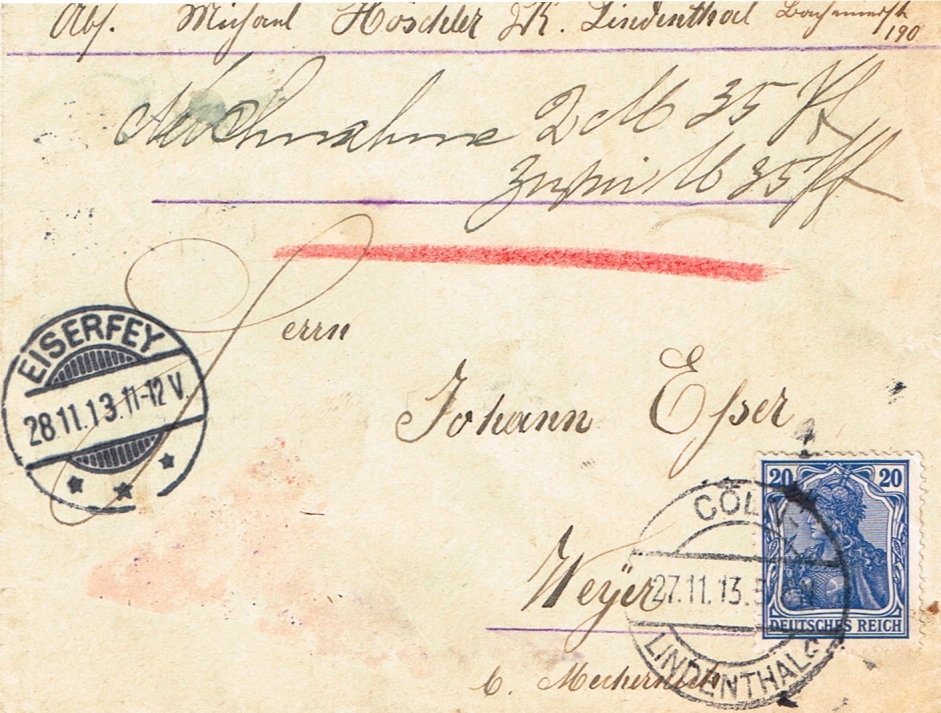 Abs. Michael Höschler Lindenthal
190
Nachnahme 2 M 35 Pf
M 35 Pf
Herrn
EISERFEY
28.11.13.11-12 V.
Johann Esser
20 20
DEUTSCHES REICH
CÖLN
27.11.13.
LINDENTHAL
Weyer
b. Mechernich